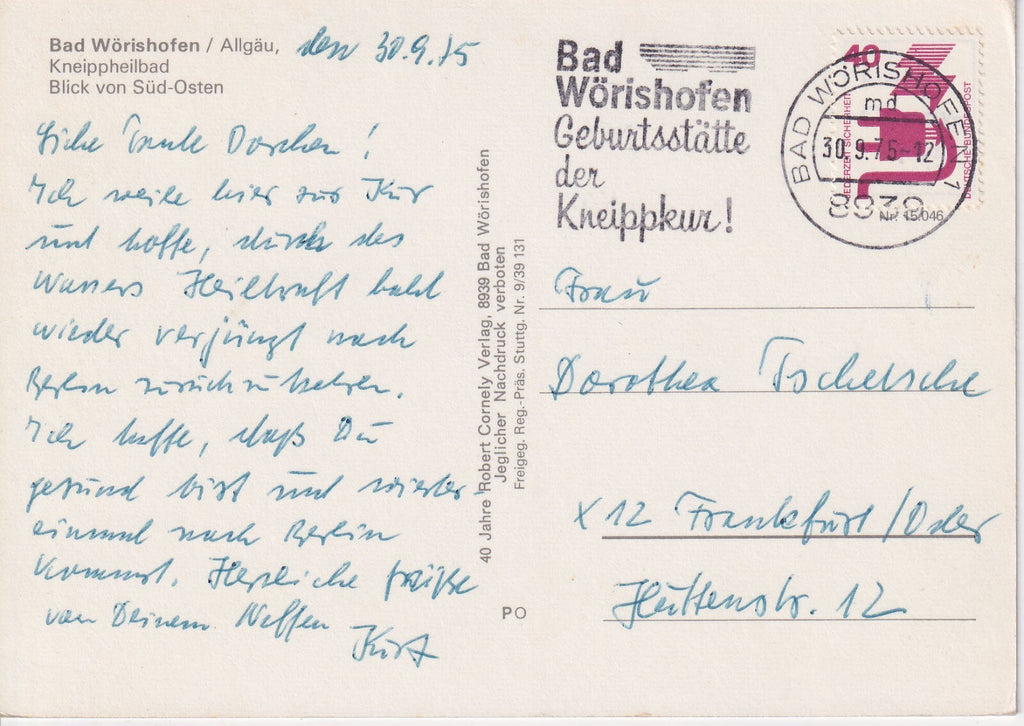 Bad Wörishofen / Allgäu, den 30.9.75
Kneippheilbad
Blick von Süd-Osten
Liebe Tante Dorchen!
Ich weile hier zur Kur
und hoffe, durch des
Wassers Heilkraft bald
wieder verjüngt nach
Berlin zurückzukehren.
Ich hoffe, daß Du
gesund bist und wieder
einmal nach Berlin
kommst. Herzliche Grüße
von Deinem Neffen
Kurt
40 Jahre Robert Cornely Verlag, 8939 Bad Wörishofen
Jeglicher Nachdruck verboten
Freigeg. Reg.-Präs. Stuttg. Nr. 9/39 131
PO
Bad
Wörishofen
Geburtsstätte
der
Kneippkur!
BAD WÖRISHOFEN 1
md
30.9.75-12
8939
40
JEDERZEIT SICHERHEIT
DEUTSCHE BUNDESPOST
Nr. 15.046
Frau
Dorothea
X 12 Frankfurt/Oder
Hüttenstr. 12